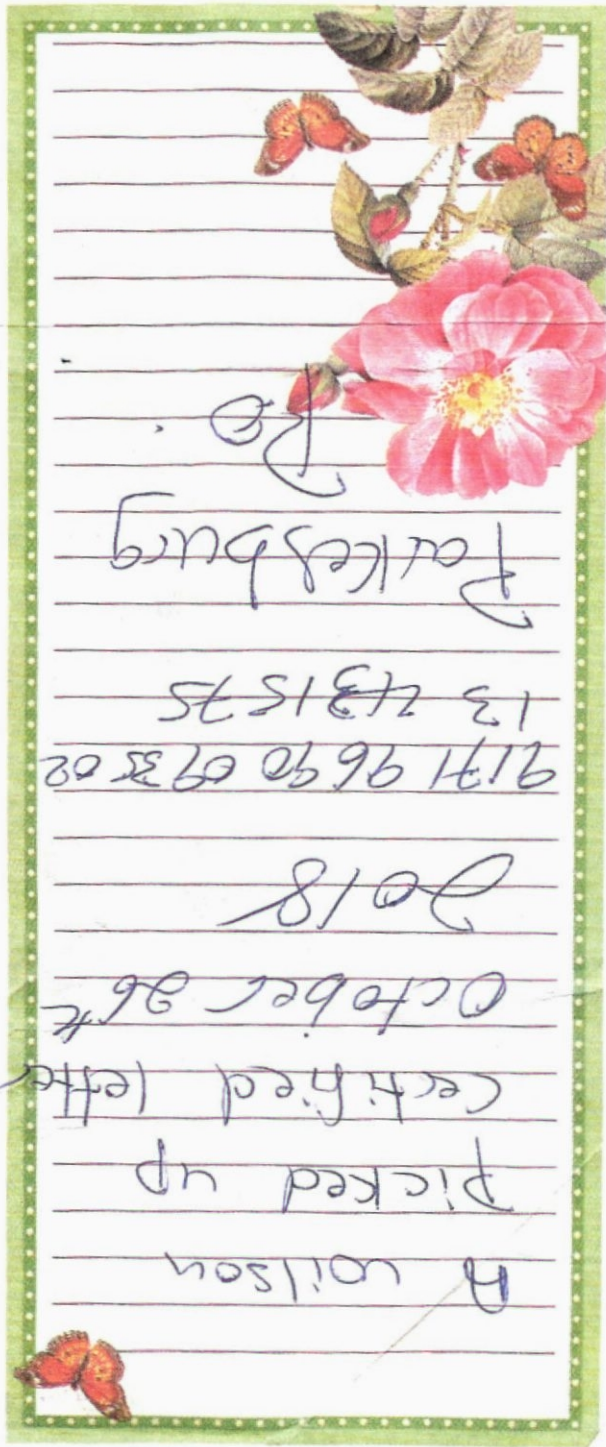 A wilson
picked up
certified letter
October 26th
2018
9171 9690 0935 02
13 4431575
Parkesburg
Po.